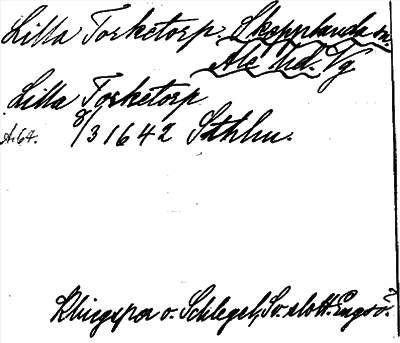 Lilla Torketorp. Skepplanda sn.
Ale hd. Vg
Lilla Torketorp
A:64. 8/3 1642 Sthlm.
Klingspor o. Schlegel, Sv. slott. Engsö.